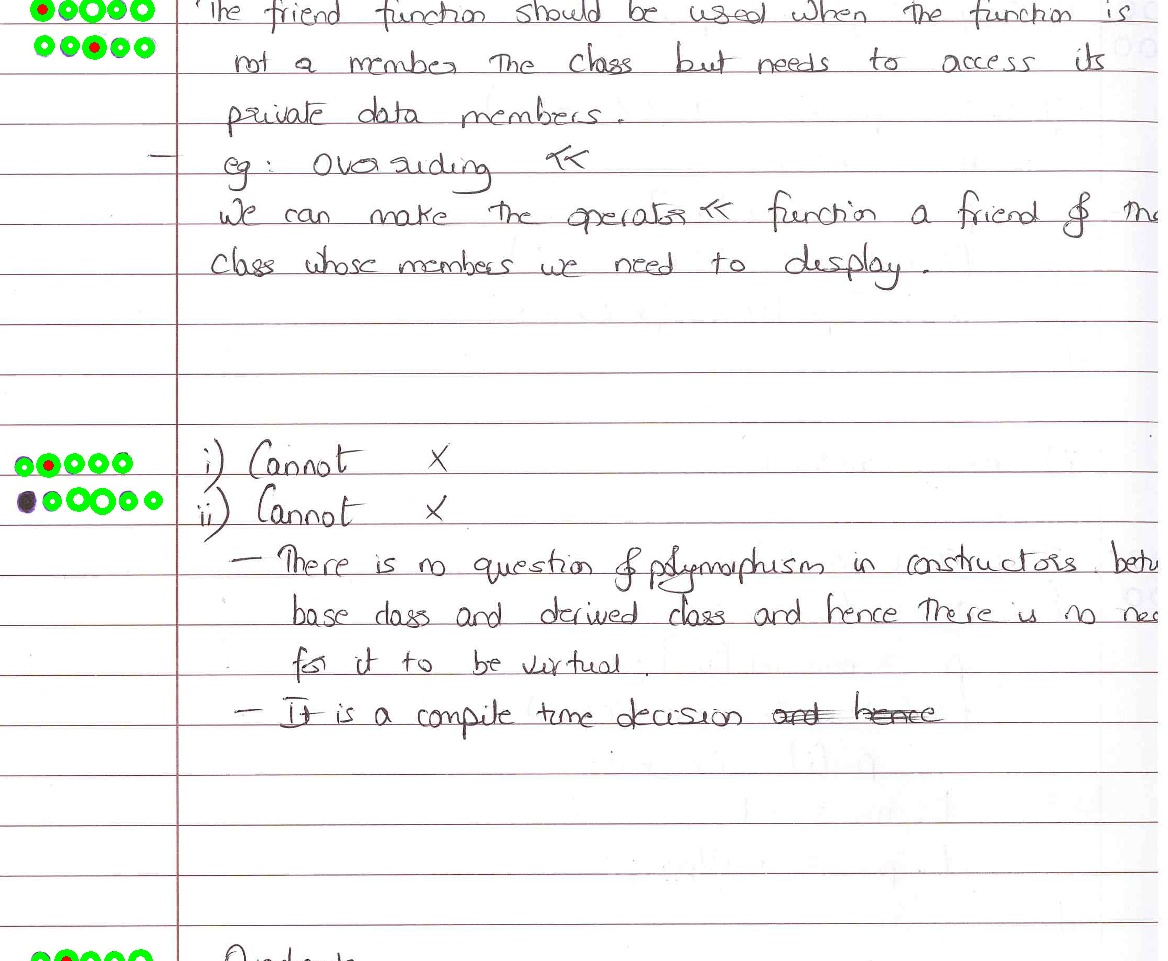 The friend function should be used when the function is
not a member the class but needs to access its
private data members.
eg: Overriding <<
We can make the operator << function a friend of the
class whose members we need to display.
i) Cannot X
ii) Cannot X
— There is no question of polymorphism in constructors
base class and derived class and hence there is no
for it to be virtual.
— It is a compile time decision and hence